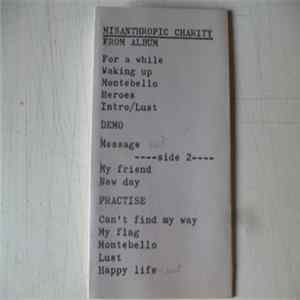 MISANTHROPIC CHARITY
FROM ALBUM
For a while
Waking up
Montebello
Heroes
Intro/Lust
DEMO
Message
----side 2----
My friend
New day
PRACTISE
Can't find my way
My flag
Montebello
Lust
Happy life